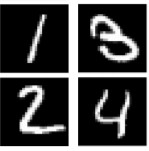 1 3
2 4